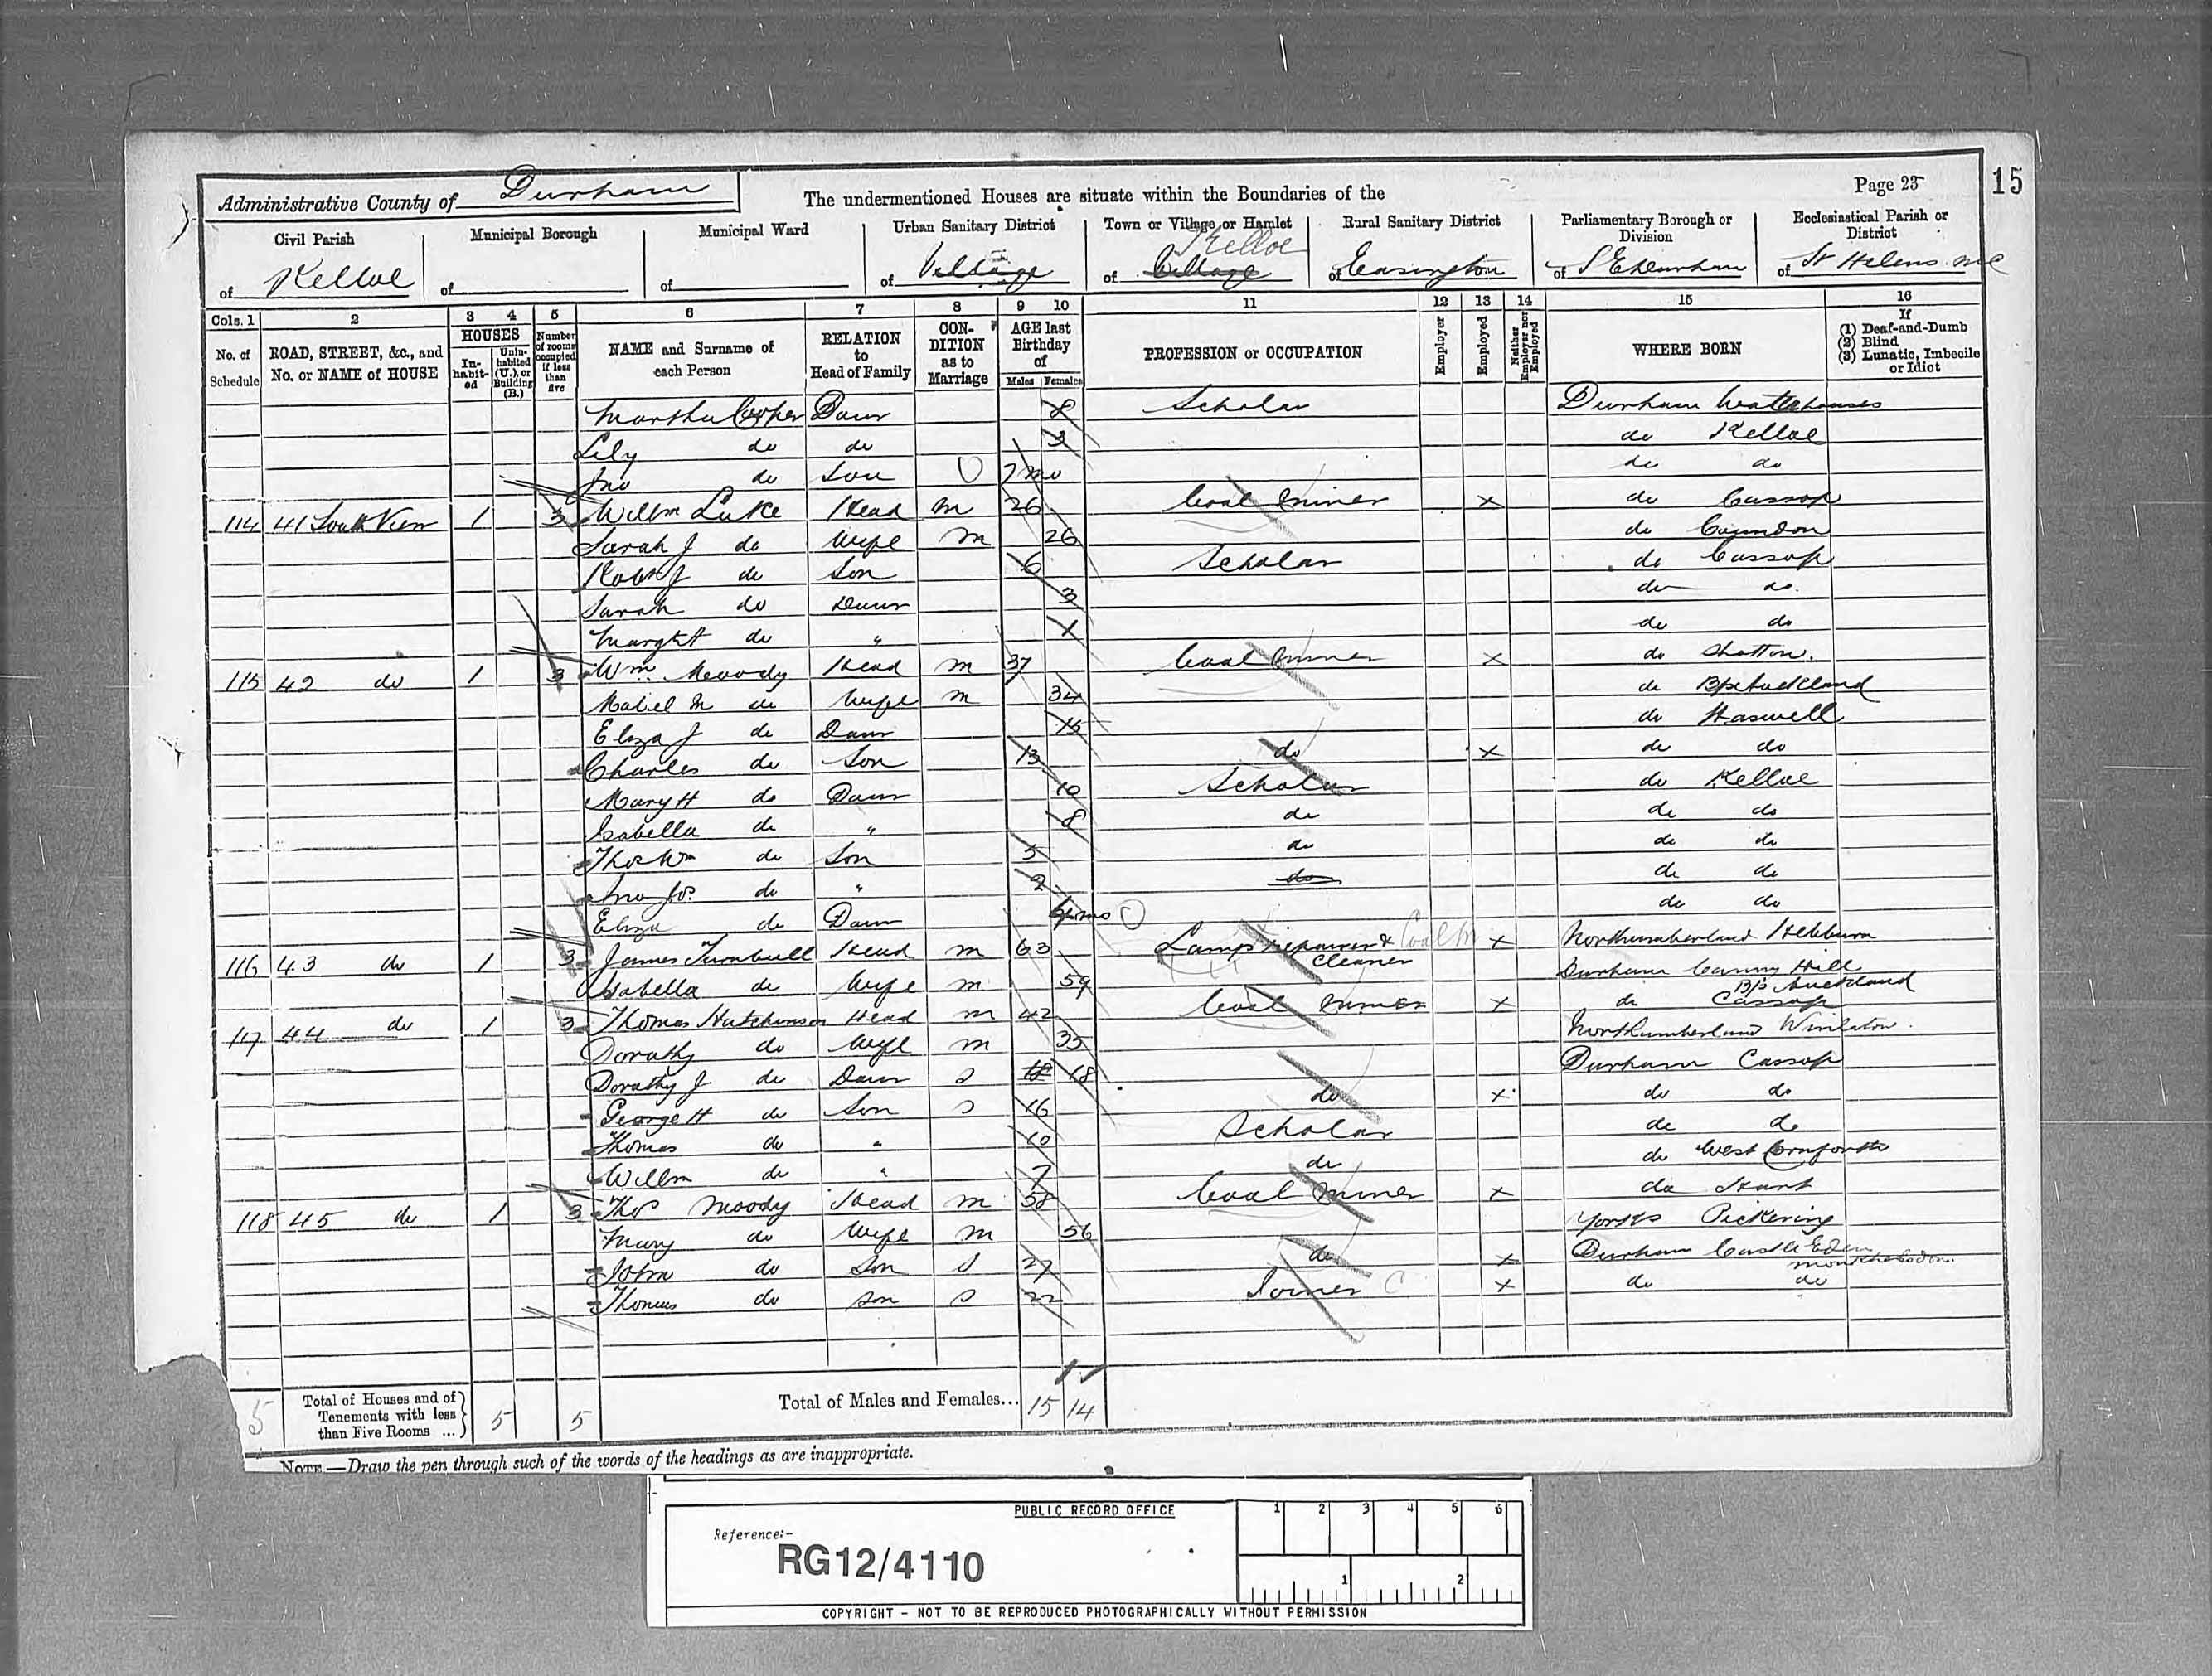 15
Administrative County of Durham
The undermentioned Houses are situate within the Boundaries of the
Page 23
Civil Parish of Kelloe
Municipal Borough of
Municipal Ward of
Urban Sanitary District of Village
Town or Village or Hamlet of Village Kelloe
Rural Sanitary District of Easington
Parliamentary Borough or Division of S E Durham
Ecclesiastical Parish or District of St Helens
Cols. 1 2 3 4 5 6 7 8 9 10 11 12 13 14 15 16
No. of Schedule
ROAD, STREET, &c., and No. or NAME of HOUSE
HOUSES
In-habit-ed
Unin-habited (U.), or Building (B.)
Number of rooms occupied if less than five
NAME and Surname of each Person
RELATION to Head of Family
CON-DITION as to Marriage
AGE last Birthday of
Males Females
PROFESSION or OCCUPATION
Employer
Employed
Neither Employer nor Employed
WHERE BORN
If
(1) Deaf-and-Dumb
(2) Blind
(3) Lunatic, Imbecile or Idiot
Martha Daur 8 Scholar Durham Waterhouses
Lily do do 3 do Kelloe
Jno do Son 7 mo do do
114 41 South View 1 3 Willm Luke Head M 26 Coal Miner X do Cassop
Sarah J do Wife M 26 do Coundon
Robt J do Son 6 Scholar do Cassop
Sarah do Daur 3 do do
Margt A do " 1 do do
115 42 do 1 3 Wm Moody Head M 37 Coal Miner X do Shotton
Mabel M do Wife M 34 do Bp Auckland
Eliza J do Daur 15 do Haswell
Charles do Son 13 do X do do
Mary H do Daur 10 Scholar do Kelloe
Isabella do " 8 do do do
Thos Wm do Son 5 do do do
Jno Jos. do " 2 do do do
Eliza do Daur mo do do
116 43 do 1 3 James Turnbull Head M 63 Lamp repairer & cleaner Coal M X Northumberland Hebburn
Isabella do Wife M 59 Durham Canny Hill Bp Auckland
117 44 do 1 3 Thomas Hutchinson Head M 42 Coal Miner X do Cassop
Dorothy do Wife M 35 Northumberland Winlaton
Dorothy J do Daur S 18 18 Durham Cassop
George H do Son S 16 do X do do
Thomas do " 10 Scholar do do
Willm do " 7 do do West Cornforth
118 45 do 1 3 Thos Moody Head M 58 Coal Miner X do Hart
Mary do Wife M 56 Yorks Pickering
John do Son S 27 do X Durham Castle Eden
Thomas do Son S 22 Joiner C X do do
5
Total of Houses and of Tenements with less than Five Rooms ... 5 5
Total of Males and Females... 15 14
NOTE.—Draw the pen through such of the words of the headings as are inappropriate.
PUBLIC RECORD OFFICE
1 2 3 4 5 6
Reference:-
RG12/4110
1 2
COPYRIGHT - NOT TO BE REPRODUCED PHOTOGRAPHICALLY WITHOUT PERMISSION